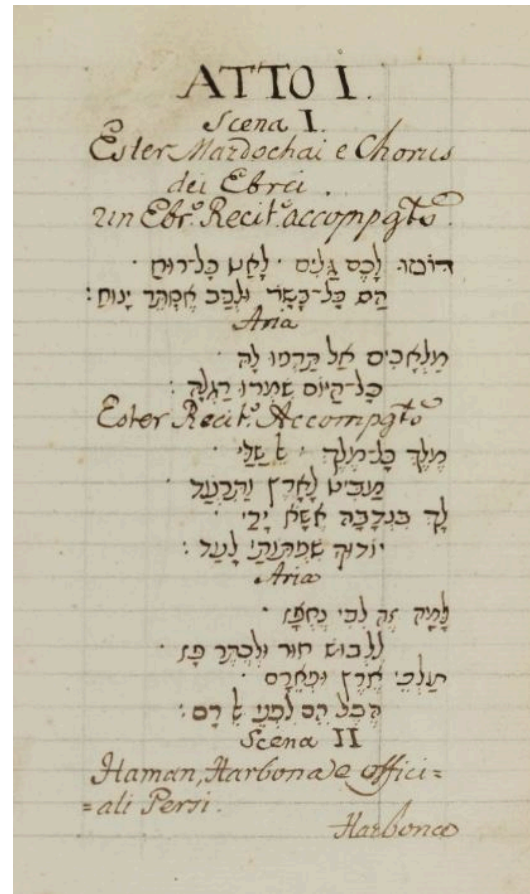 ATTO I.
Scena I.
Ester Mardochai e Chorus
dei Ebrei.
un Ebr.º Recit.º accompgt.º
דומו לכם גלים · לאט כל־רוח ·
הס כל־בשר ולבב אסתר ינוח:
Aria
מלאכים אל תדמו לה
כל־היום שמרו רגלה:
Ester Recit.º Accompgt.º
מלך כל־מלך
מביט לארץ ותרעד
לך בנדבה אשא ידי ·
יודוך לעד:
Aria
זה לבי נחפז ·
ללבוש חור ולכתר פז ·
ארץ
הבל הם לפני רם:
Scena II
Haman, Harbona e offici=
=ali Persi.
Harbona